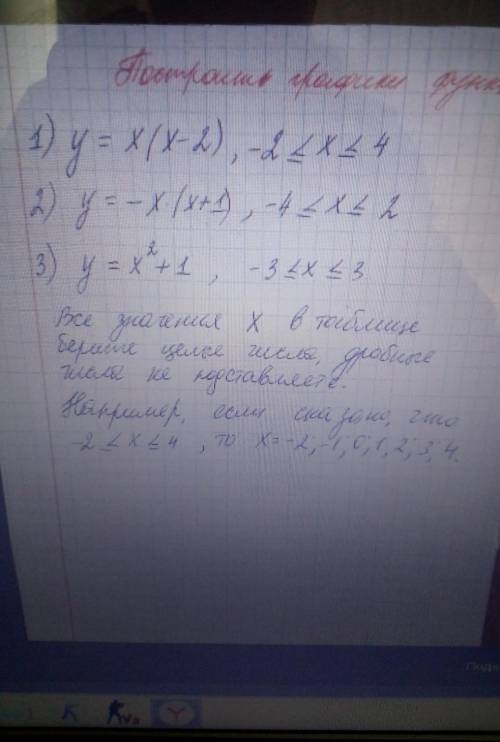 Построить графики функ
1) y = x(x-2), -2 ≤ x ≤ 4
2) y = -x(x+1), -4 ≤ x ≤ 2
3) y = x² + 1, -3 ≤ x ≤ 3
Все значения x в таблице
берите целые числа, дробные
числа не подставляете.
Например, если сказано, что
-2 ≤ x ≤ 4, то x = -2; -1; 0; 1; 2; 3; 4.